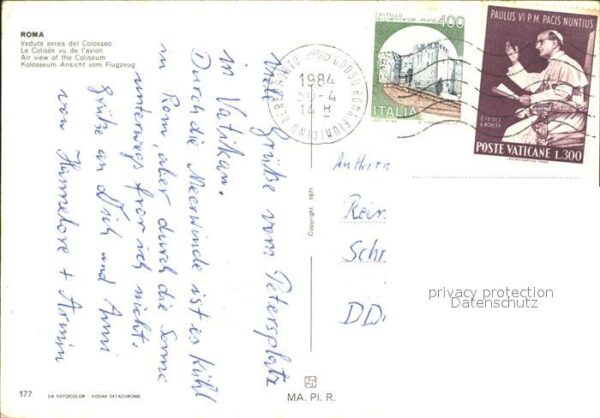 ROMA
Veduta aerea del Colosseo
Le Colisée vu de l'avion
Air view of the Coliseum
Kolosseum Ansicht vom Flugzeug
Viele Grüße vom Petersplatz
in Vatikan.
Durch die Meerwinde ist es kühl
in Rom, aber durch die Sonne
unterwegs fror ich nicht.
Grüße an Dich und Anni
von Hannelore + Armin
1984
14
CASTELLO
DELL'IMPERATORE - PRATO
400
ITALIA
PAULUS VI P.M. PACIS NUNTIUS
POSTE VATICANE L.300
An Herrn
Rein
Sch
DD
Copyright 1971
privacy protection
Datenschutz
177
DA FOTOCOLOR - KODAK EKTACHROME
MA. PI. R.